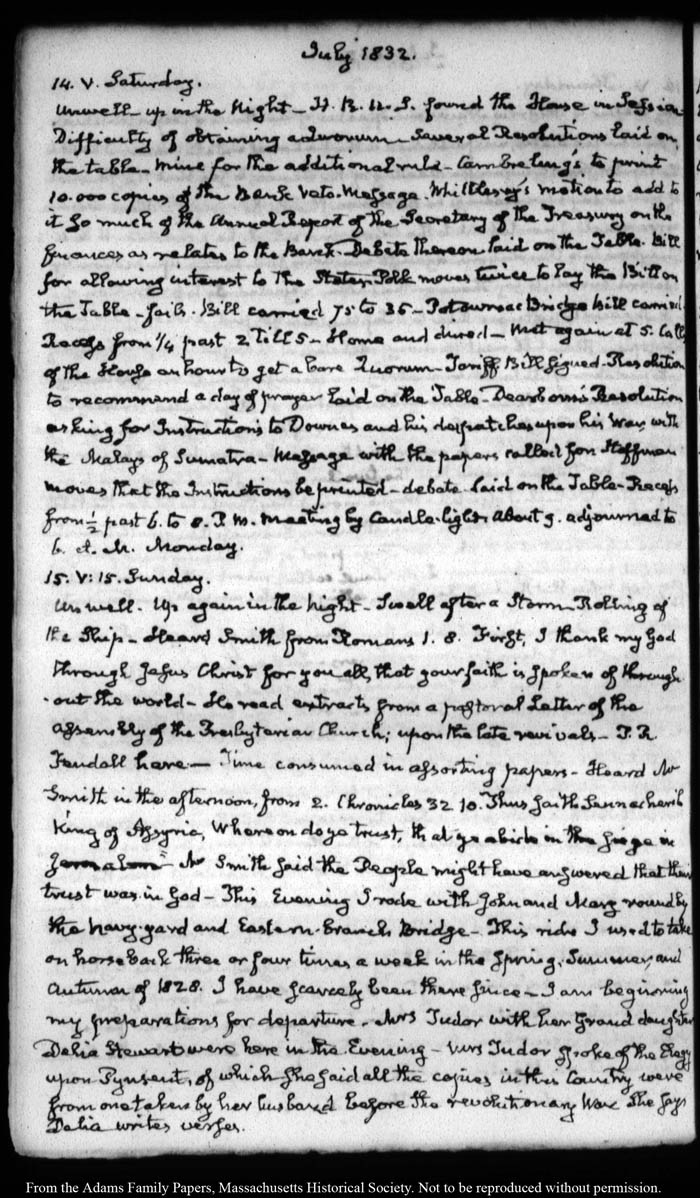 July 1832.
14. V. Saturday.
Unwell - up in the Night - H. R. U. S. found the House in Session
Difficulty of obtaining a quorum - Several Resolutions laid on
the table - mine for the additional rule - Cambreleng's to print
10.000 copies of the Bank Veto-Message. Whittlesey's motion to add to
it so much of the Annual Report of the Secretary of the Treasury on the
finances as relates to the Bank - Debate thereon laid on the Table. Bill
for allowing interest to the States. Polk moves twice to lay the Bill on
the Table - fails. Bill carried 75 to 36 - Potowmac Bridge bill carried
Recess from ¼ past 2 till 5 - Home and dined - Met again at 5. Call
of the House an hour to get a bare Quorum - Tariff Bill signed - Resolution
to recommend a day of prayer laid on the Table - Dearborn's Resolution
asking for Instructions to Downes and his despatches upon his War with
the Malays of Sumatra - Message with the papers called for. Hoffman
moves that the Instructions be printed - debate - laid on the Table - Recess
from ½ past 6. to 8. P. M. Meeting by Candle-light. About 9. adjourned to
6. A. M. Monday.
15. V: 15. Sunday.
Unwell. Up again in the night - Swell after a Storm - Rolling of
the Ship - Heard Smith from Romans 1. 8. First, I thank my God
through Jesus Christ for you all, that your faith is spoken of through
-out the world - He read extracts from a pastoral Letter of the
assembly of the Presbyterian Church; upon the late revivals - P. R.
Fendall here - Time consumed in assorting papers - Heard Mr
Smith in the afternoon, from 2. Chronicles 32 10. Thus saith Sennacherib
King of Assyria, Whereon do ye trust, that ye abide in the siege in
Jerusalem" Mr Smith said the People might have answered that their
trust was in God - This Evening I rode with John and Mary round by
the navy-yard and Eastern-branch Bridge - This ride I used to take
on horseback three or four times a week in the Spring, Summer, and
Autumn of 1828. I have scarcely been there since - I am beginning
my preparations for departure. Mrs Tudor with her Grand daughter
Delia Stewart were here in the Evening - Mrs Tudor spoke of the Elegy
upon Pynsent, of which she said all the copies in this Country were
from one taken by her husband before the revolutionary War. She says
Delia writes verses.
From the Adams Family Papers, Massachusetts Historical Society. Not to be reproduced without permission.